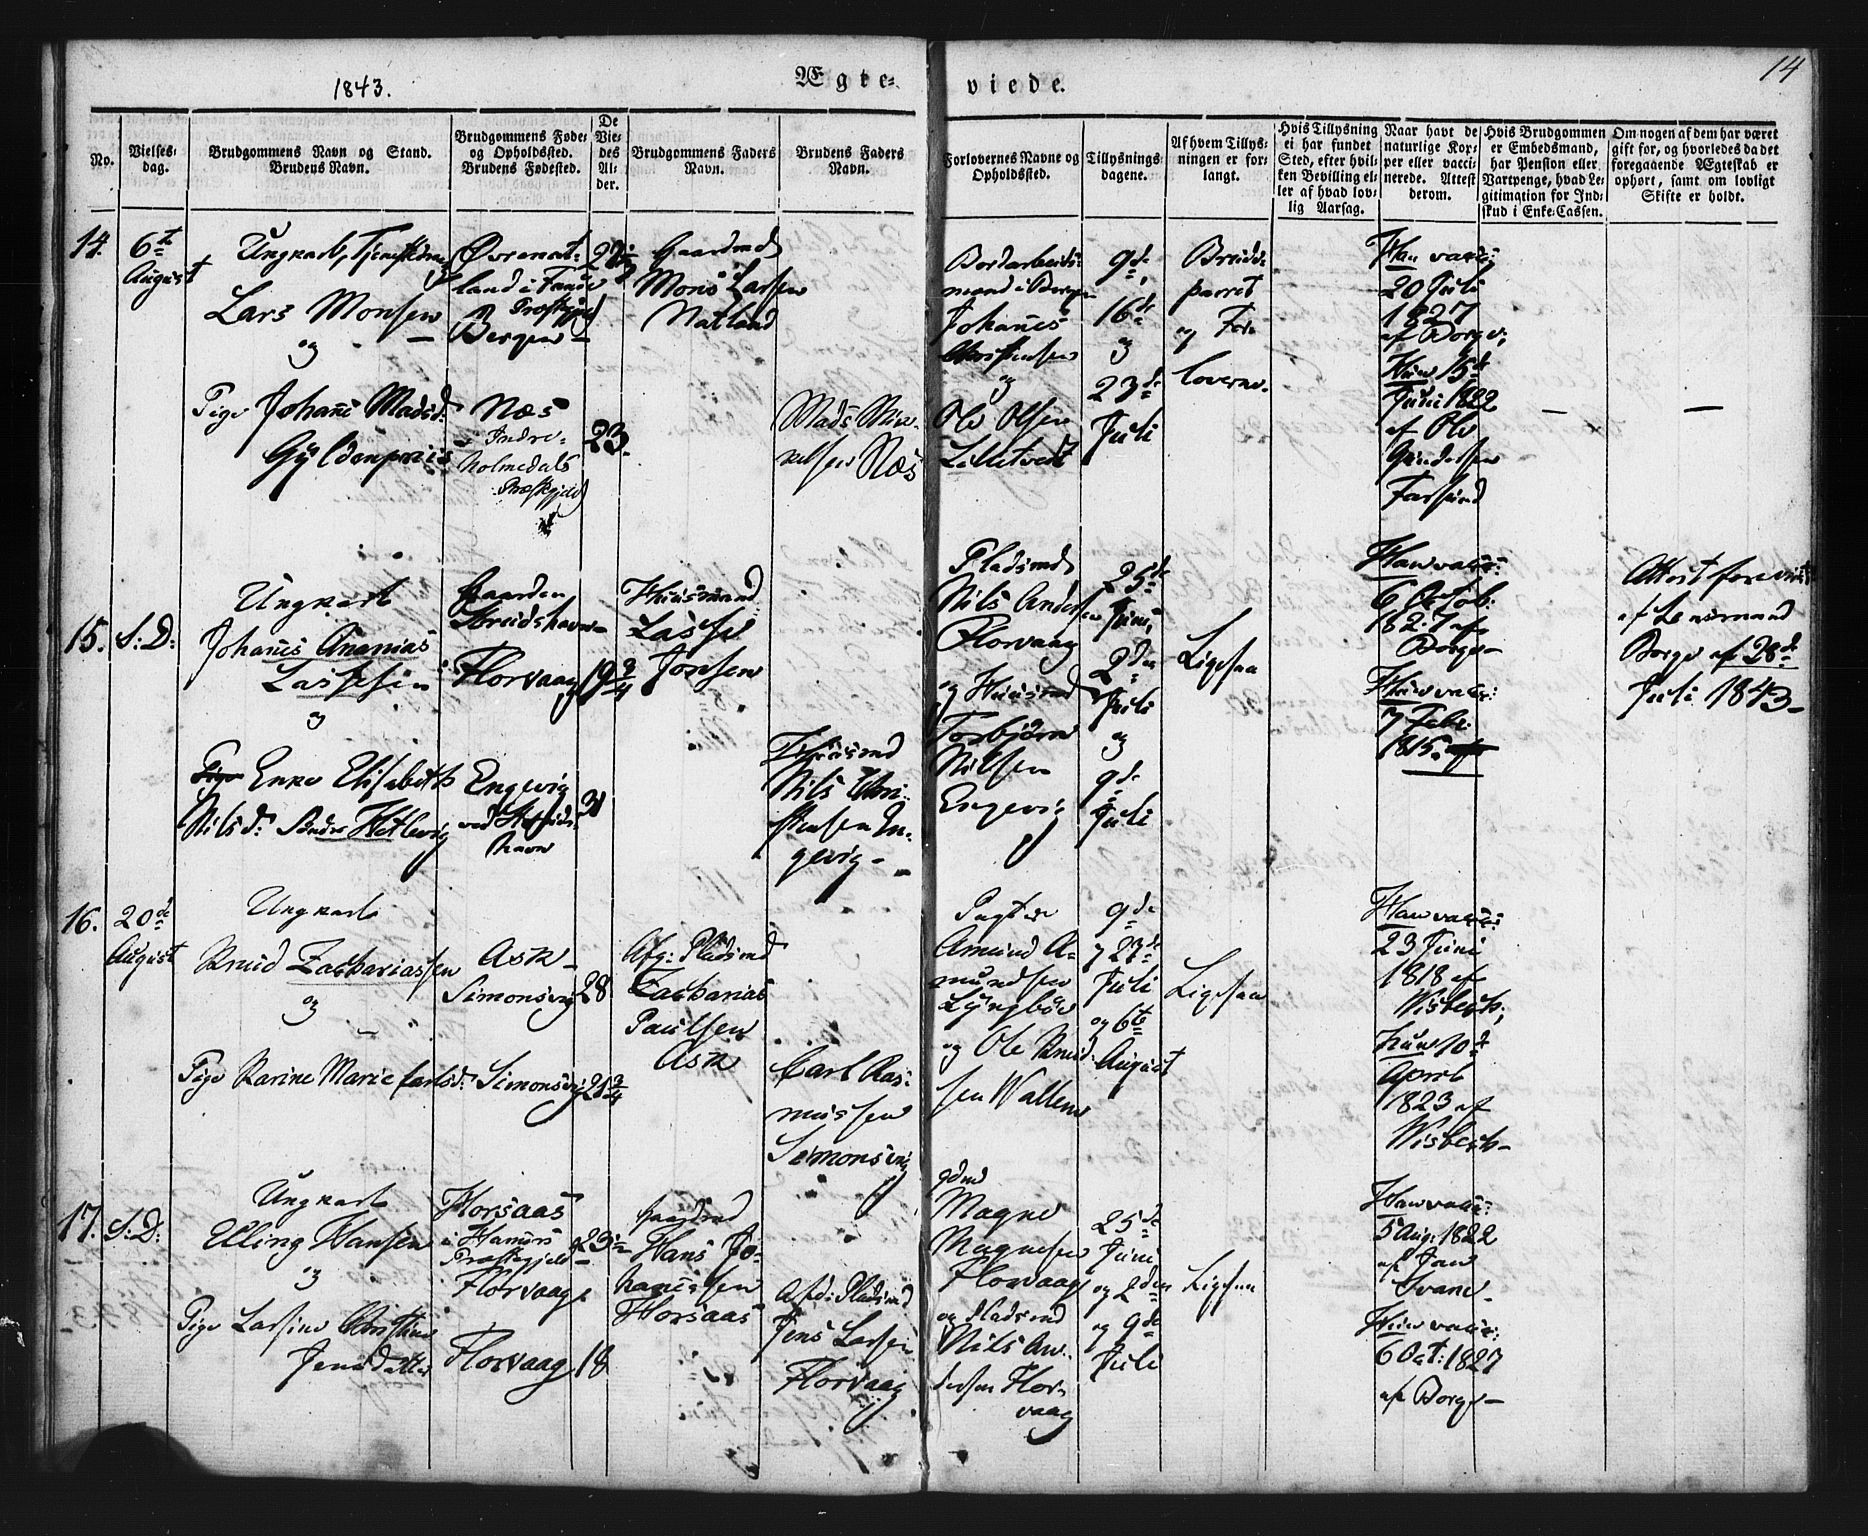 1843.
Ægte-
viede.
14
No.
Vielses-
dag.
Brudgommens Navn og Stand.
Brudens Navn.
Brudgommens Føde-
og Opholdssted.
Brudens Fødested.
De
Vie-
des
Al-
der.
Brudgommens Faders
Navn.
Brudens Faders
Navn.
Forlovernes Navne og
Opholdssted.
Tillysnings-
dagene.
Af hvem Tillys-
ningen er for-
langt.
Hvis Tillysning
ei har fundet
Sted, efter hvil-
ken Bevilling el-
ler af hvad lov-
lig Aarsag.
Naar havt de
naturlige Kop-
per eller vacci-
nerede. Attest
derom.
Hvis Brudgommen
er Embedsmand,
har Pension eller
Vartpenge, hvad Le-
gitimation for Ind-
skud i Enke-Cassen.
Om nogen af dem har været
gift før, og hvorledes da det
foregaaende Ægteskab er
ophørt, samt om lovligt
Skifte er holdt.
14.
6te
August
Ungkarl,
Lars Monsen
og
Pige Johane Madsd:
Gyldenpriis
Øvrenat-
land i Fane
Præstgjeld
Bergen
Næs
i Indre-
holmedals
Præstgjeld
23.
Gaardmd
Mons Larsen
Natland
Mads Mik-
kelsen Næs
Bordarbeids-
mand i Bergen
Johanes
Christensen
og
Ole Olsen
Lilletvedt
9de
16de
og
23de
Juli
Brude-
parret
og For-
loverne.
Han vacc:
20 Juli
1827
af Borge;
Hun 15de
Juni 1822
af Ole
Gundersen
Farsund
—
—
15.
S: D:
Ungkarl
Johanes Ananias
Lassesen
og
Pige Enke Elisabeth
Nilsd: Søndre Hetlevig
Gaarden
Strudshavn
Florvaag
Engevig
ved Struds-
havn
19 3/4
31
Huusmand
Lasse
Jonsen
Huusmd
Nils Chri-
stensen En-
gevig-
Pladsmd
Nils Andersen
Florvaag
og Huusmd
Torbjørn
Nilsen
Engevig
25de
Juni,
2den
Juli
og
9de
Juli
Ligesaa
Han vacc:
6 Octob:
1827 af
Borge-
Hun vacc:
7 Febr:
1815. af
Attest foreviist
af Lensmand
Borge af 28de
Juli 1843-
16.
20de
August
Ungkarl
Knud Zachariassen
og
Pige Karine Marie Carlsd:
Ask-
Simonsvig
Simonsvig
28
21 3/4
Afg: Pladsmd
Zacharias
Paulsen
Ask
Carl Ras-
mussen
Simonsvig
Pagter
Amund A-
mundsen
Lyngbøe
og Ole Knud-
sen Wallen
9de
og 23de
Juli
og 6te
August
Ligesaa
Han vacc:
23 Juni
1818 af
Wisbech;
hun 10de
April
1823 af
Wisbech-
17.
S: D:
Ungkarl
Elling Hansen
og
Pige Larsine Christine
Jensdatter
Horsaas
i Hammers
Præstegjeld-
Florvaag
Florvaag
18
Gaardmd
Hans Jo-
hannessen
Horsaas
Afd: Pladsmd
Jens Larsen
Florvaag
Gdmd
Magne
Magnesen
Florvaag
og Pladsmd
Nils An-
dersen Flor-
vaag
25de
Juni
og 2den
og 9de
Juli
Ligesaa
Han vacc:
5 Aug: 1822
af Jan
Svane-
Hun vacc:
6 Oct: 1827
af Borge-